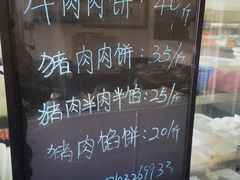 牛肉肉饼：40/斤
猪肉肉饼：35/斤
猪肉半肉半馅：25/斤
猪肉馅饼：20/斤